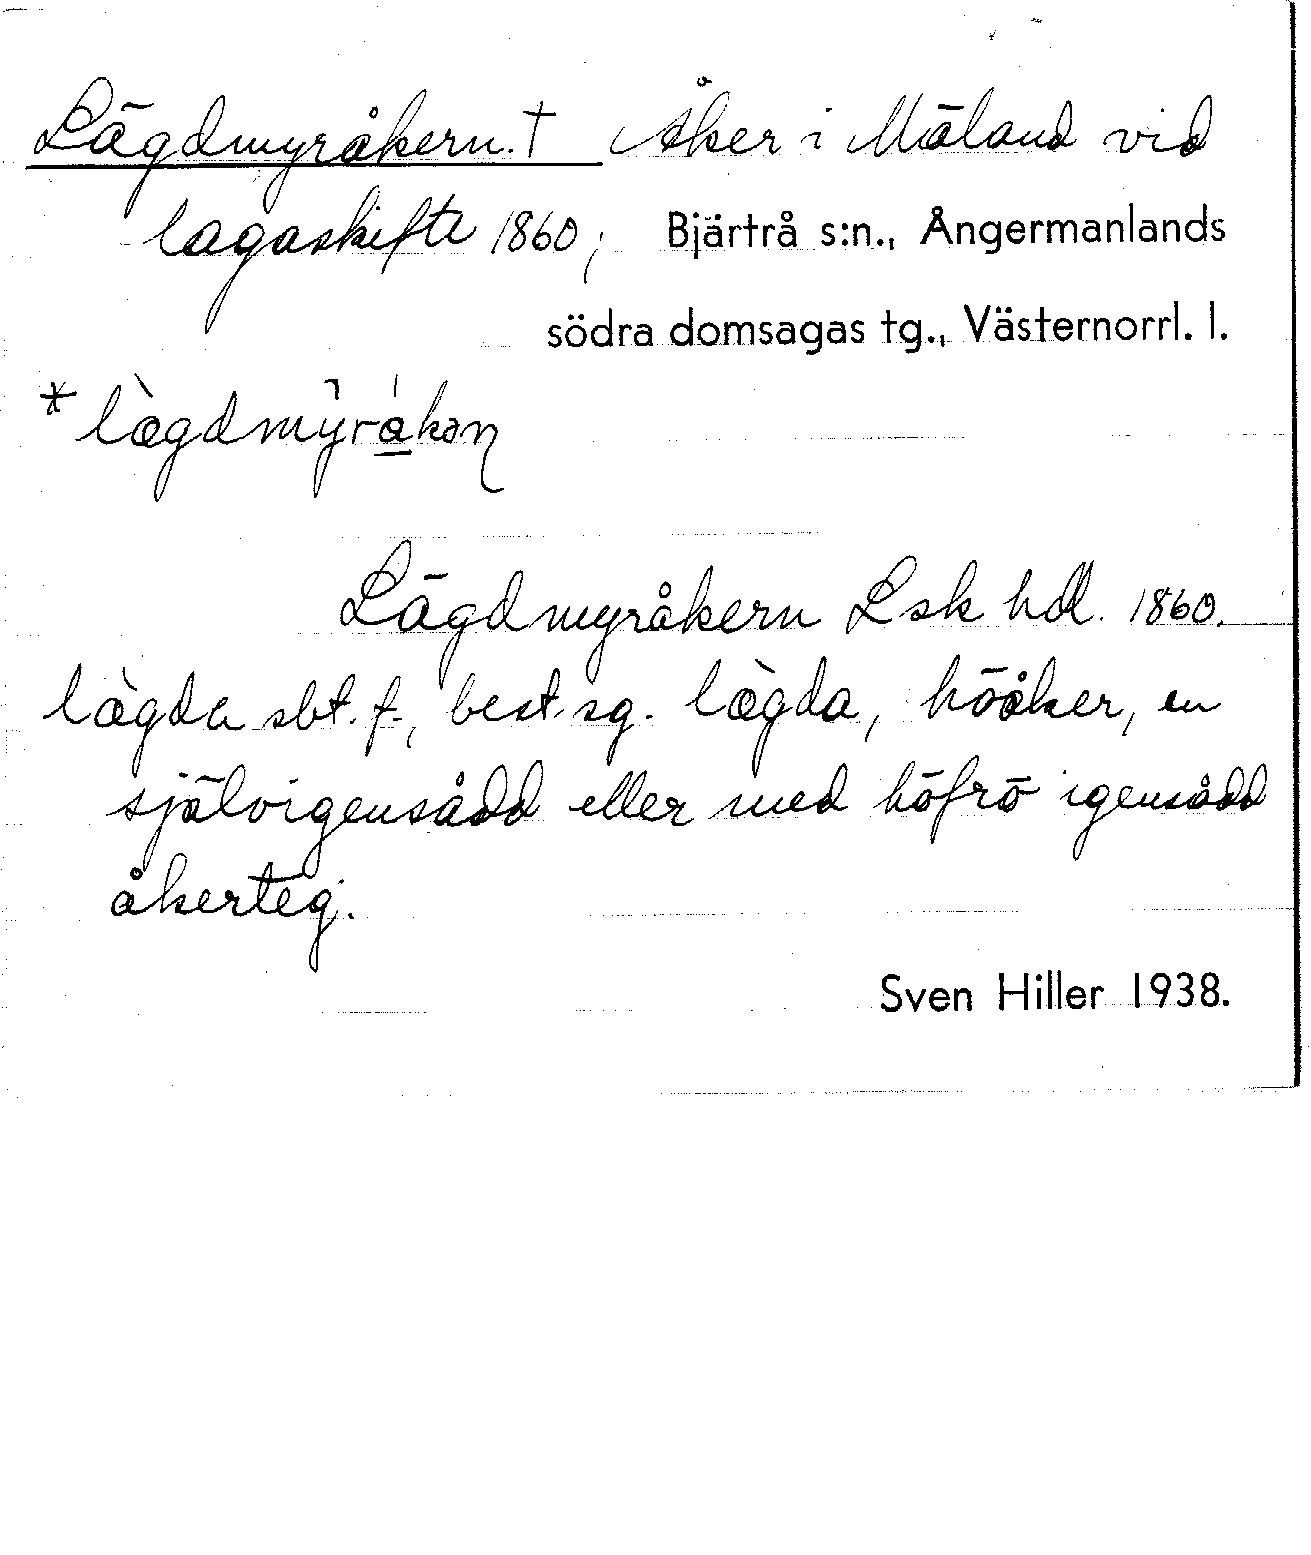 Lägdmyråkern. † Åker i Mäland vid
lagaskifte 1860; Bjärtrå s:n., Ångermanlands
södra domsagas tg., Västernorrl. l.
Lägdmyråkern Lsk hdl. 1860.
lægda sbt. f., best. sg. lægda, höåker, en
självigensådd eller med höfrö igensådd
åkerteg.
Sven Hiller 1938.